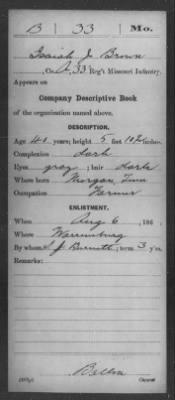 B | 33 | Mo.
Isaiah J Brown
Co. A, 33 Reg't Missouri Infantry.
Appears on
Company Descriptive Book
of the organization named above.
DESCRIPTION.
Age 40 years; height 5 feet 10½ inches.
Complexion dark
Eyes gray; hair dark
Where born Morgan, Tenn
Occupation Farmer
ENLISTMENT.
When Aug 6, 186 .
Where Warrensburg
By whom S J Burnett; term 3 y'rs.
Remarks:
Copyist.